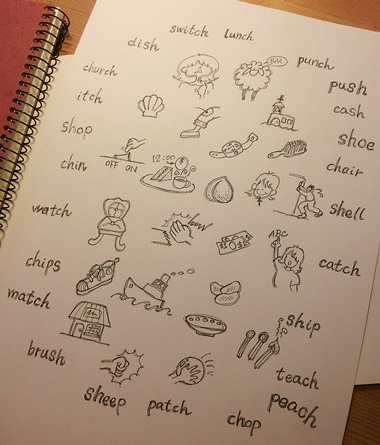 switch lunch
dish
church
punch
itch
push
cash
shop
shoe
chin
OFF ON
12:00
chair
shell
watch
ABC
catch
chips
match
ship
brush
teach
sheep
patch
chop
peach